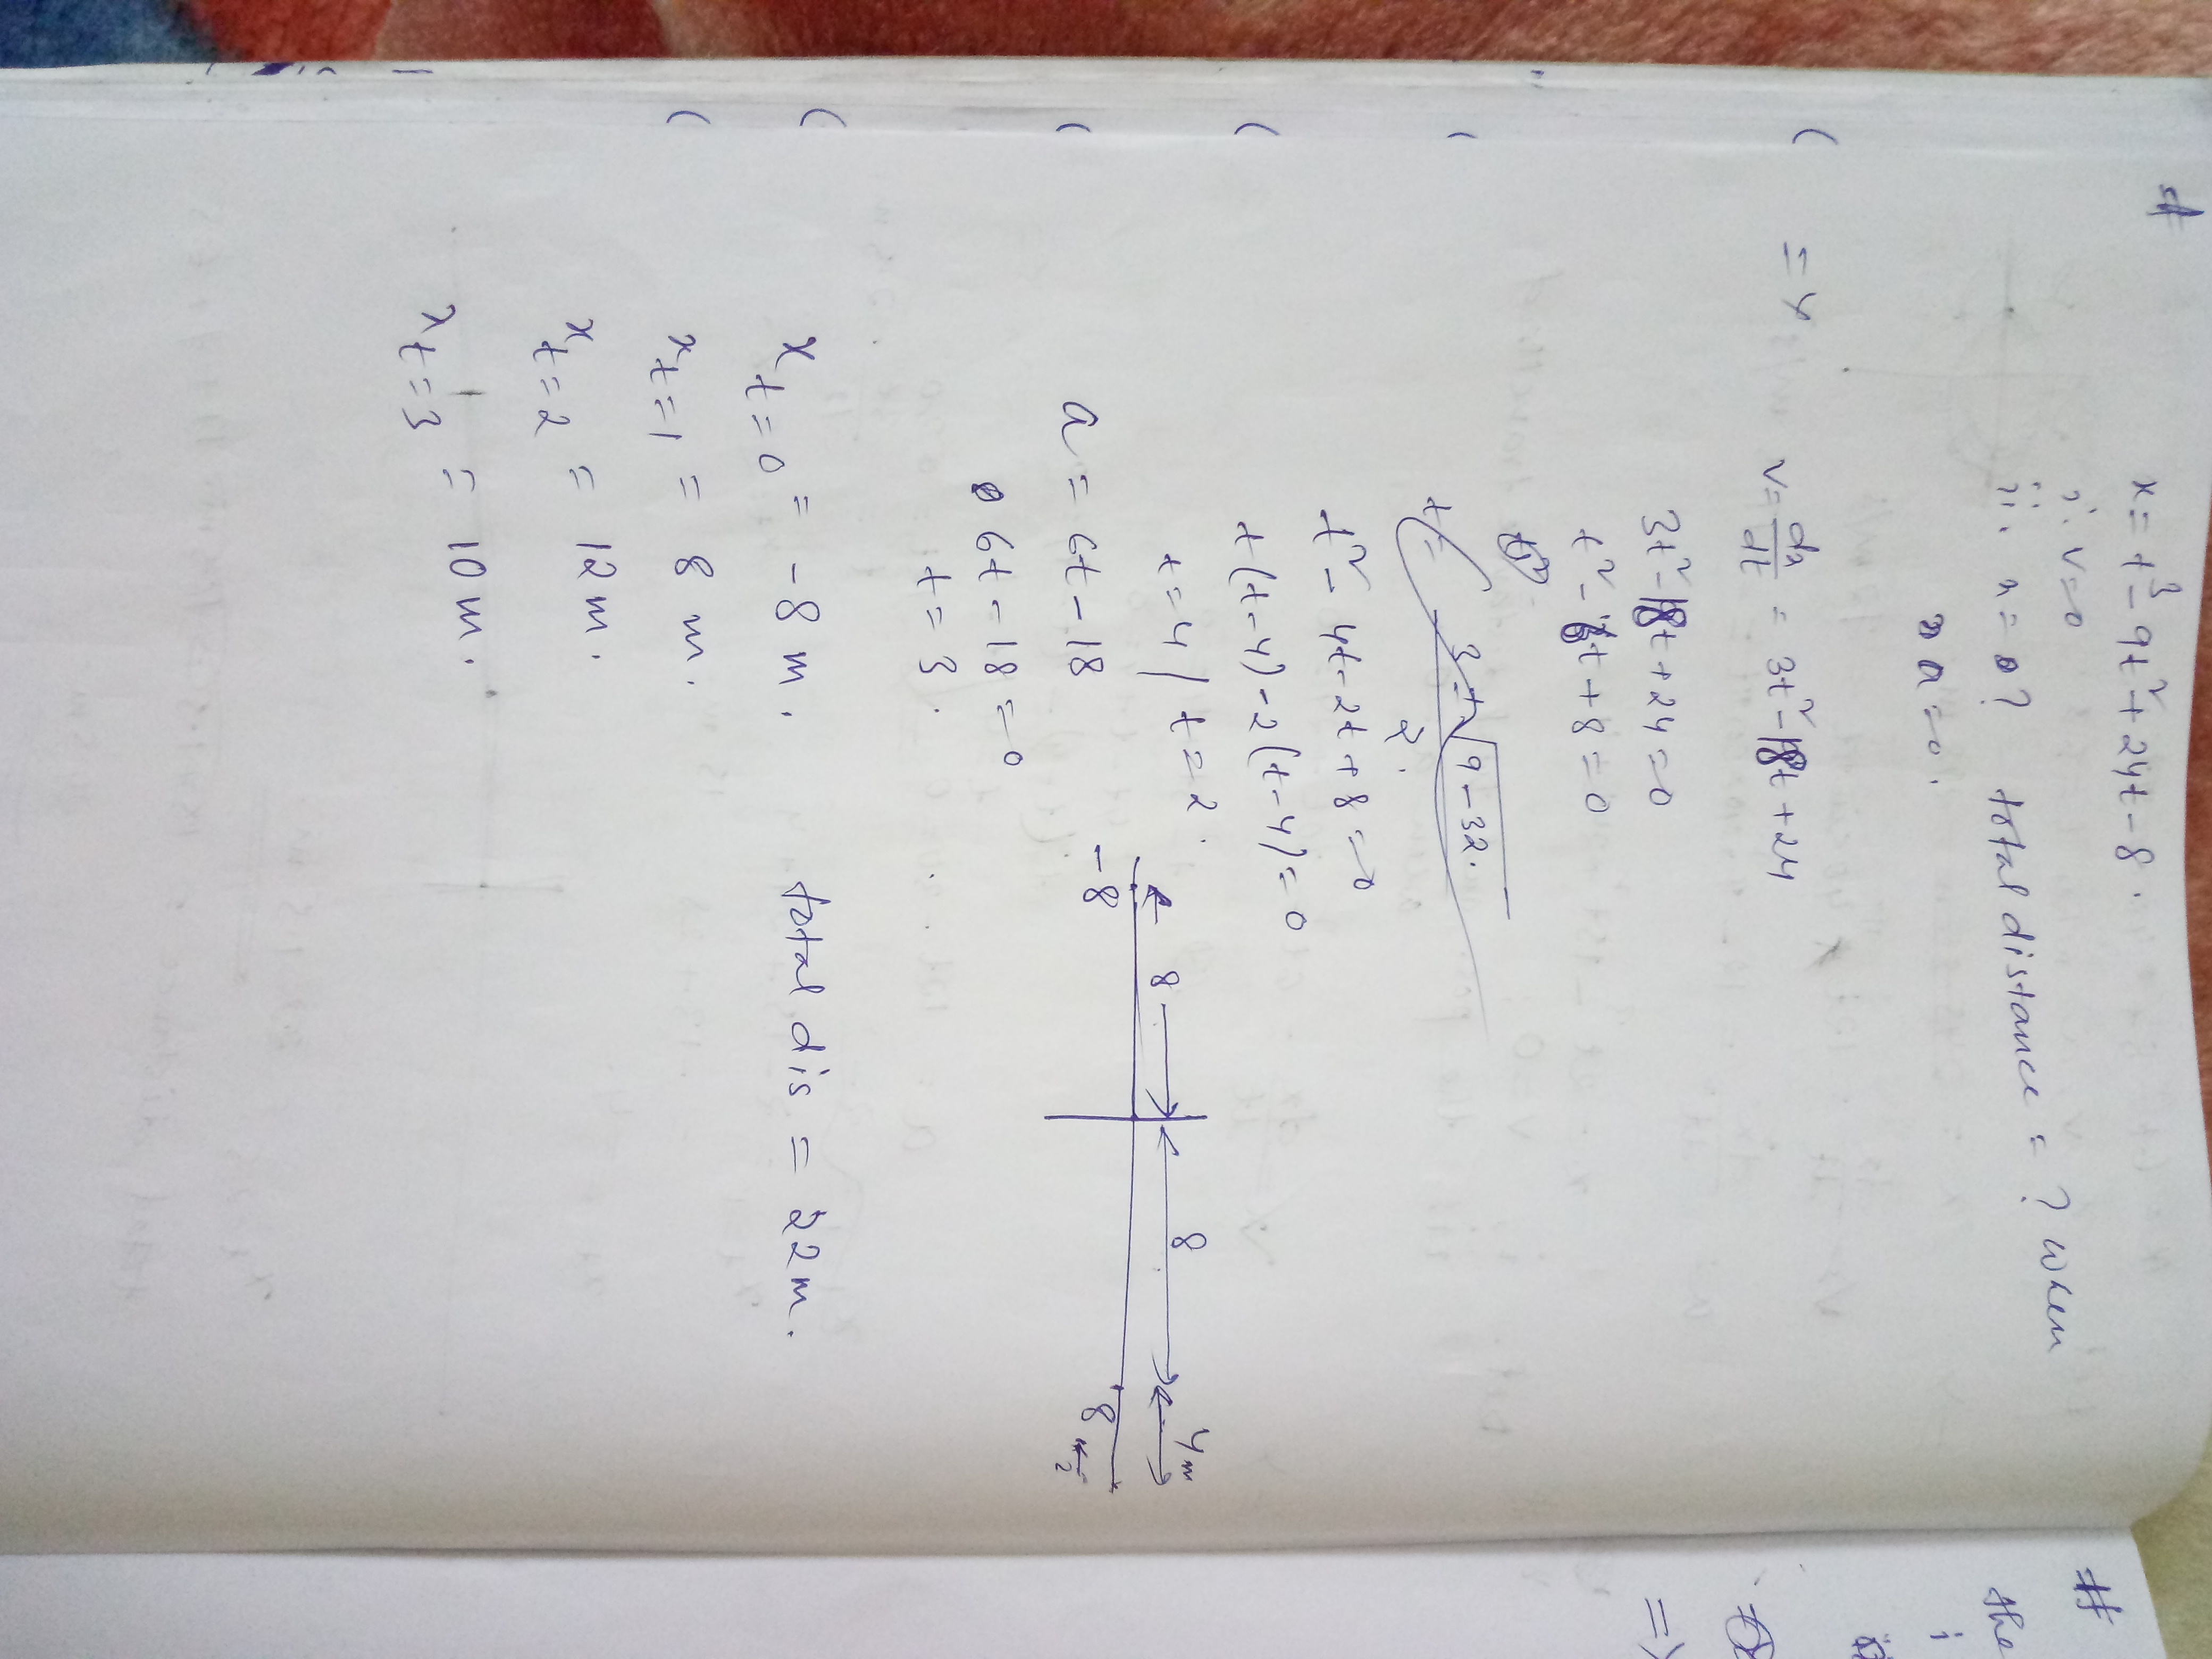 #
x = t³ - 9t² + 24t - 8 .
i. v=0
ii. x = 0? total distance = ? when
a = 0 .
=> v = dx/dt = 3t² - 18t + 24
3t² - 18t + 24 = 0
t² - 6t + 8 = 0
t = 3 ± √9 - 32 . / 2 .
t² - 4t - 2t + 8 = 0
t(t-4) - 2(t-4) = 0
t = 4 / t = 2 .
8 8 4m
-8 8 2
a = 6t - 18
6t - 18 = 0
t = 3 .
x t=0 = -8 m . total dis = 22m .
x t=1 = 8 m .
x t=2 = 12m .
x t=3 = 10 m .
#
the
i
=>